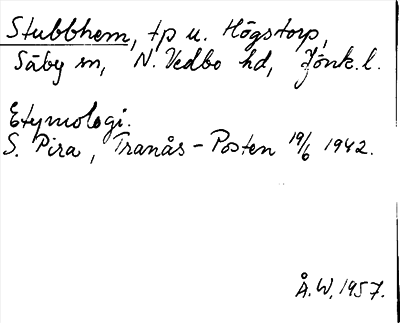 Stubbhem, tp u. Högstorp,
Säby sn, N. Vedbo hd, Jönk. l.
Etymologi.
S. Pira, Tranås-Posten 19/6 1942.
Å.W. 1957.